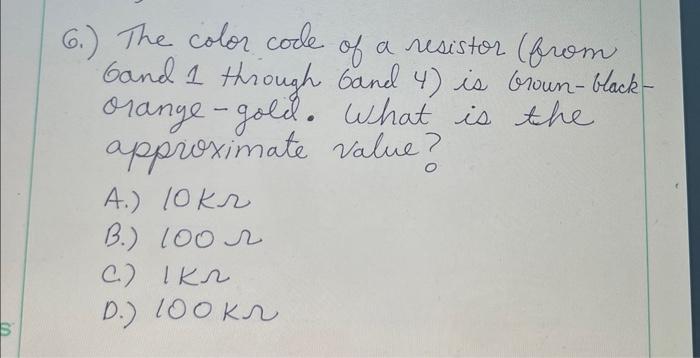 6.) The color code of a resistor (from
band 1 through band 4) is brown-black-
orange-gold. What is the
approximate value?
A.) 10KΩ
B.) 100Ω
C.) 1KΩ
D.) 100KΩ
S